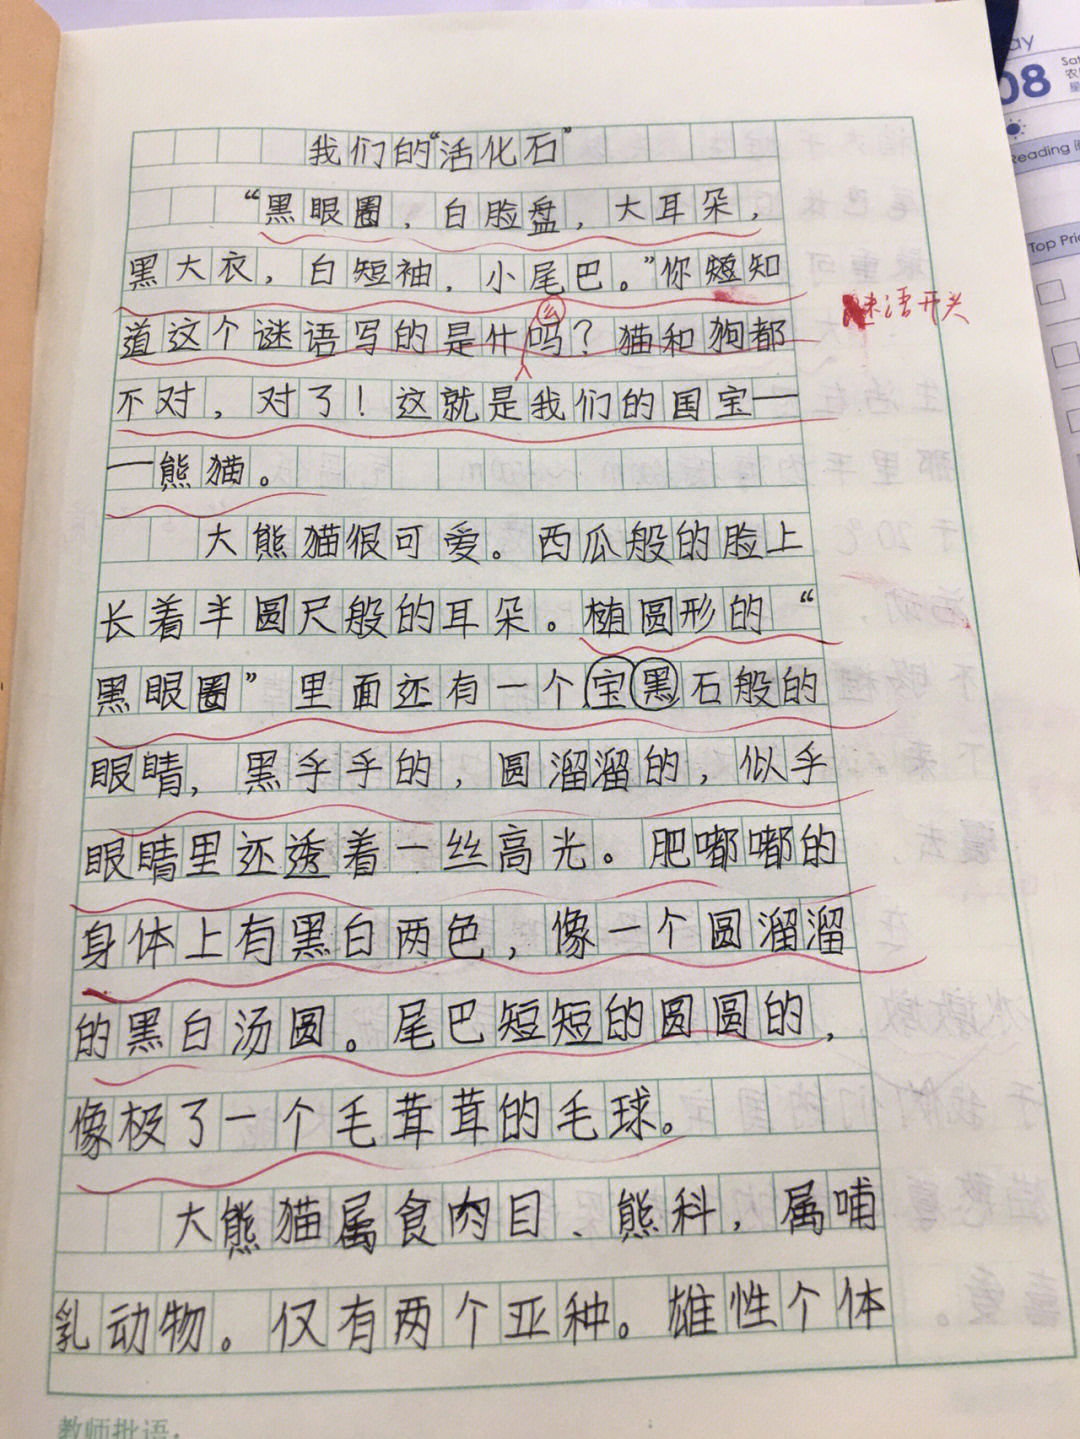 我们的“活化石”
“黑眼圈，白脸盘，大耳朵，
黑大衣，白短袖，小尾巴。”你短知
道这个谜语写的是什吗？猫和狗都
么
谜语开头
不对，对了！这就是我们的国宝—
—熊猫。
大熊猫很可爱。西瓜般的脸上
长着半圆尺般的耳朵。植圆形的“
黑眼圈”里面还有一个宝黑石般的
眼睛，黑乎乎的，圆溜溜的，似乎
眼睛里还透着一丝高光。肥嘟嘟的
身体上有黑白两色，像一个圆溜溜
的黑白汤圆。尾巴短短的圆圆的，
像极了一个毛茸茸的毛球。
大熊猫属食肉目、熊科，属哺
乳动物。仅有两个亚种。雄性个体
教师批语：
08
Sat
Reading
Top Prio